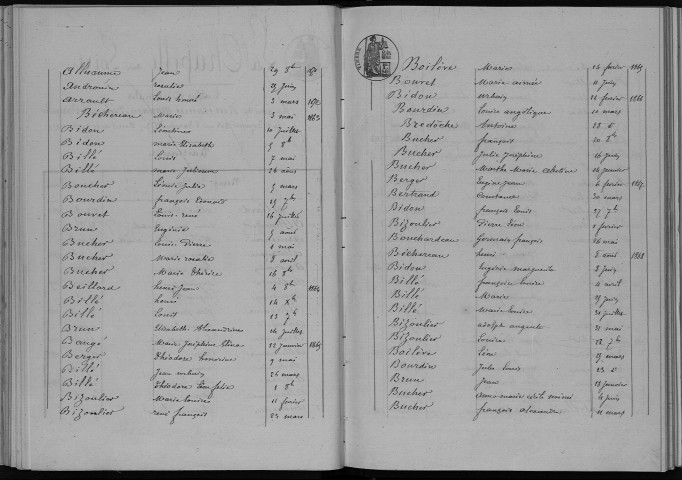 Alleaume Jean 29 8b
Andronin rosalie 29 juin
Arrault Louis honoré 3 mars 1872
Béchereau Marie 3 mai 1863
Bidon Léontine 10 juillet
Bidon marie Elisabeth 5 8b
Billé Louis 7 mai
Billé marie 26 aout
Boucher Louise Julie 5 mars
Bourdin françois Léonard 25 7b
Bouvet Louis rené 16 juillet
Brun Eugénie 5 aout
Bucher Louis Pierre 1 mai
Bucher Marie rosalie 8 avril
Bucher Marie Thérèse 16 8b
Beillard henri Jean 4 8b 1864
Billé henri 14 Xb
Billé Louis 13 7b
Brun Elisabeth Alexandrine 24 juillet
Baugé Marie Joséphine 22 janvier 1865
Berger Théodore honorine 9 mai
Billé Jean 26 mars
Billé Théodore felix 1 8b
Bizoulier Marie Louise 11 fevrier
Bizoulier rené françois 23 mars
Boilève Marie 14 fevrier 1865
Bouvet Marie aimée 11 juin
Bidon urbain 18 fevrier 1866
Bourdin Louise angélique 10 mars
Bredèche Antoine 28 d
Bucher françois 30 8b
Bucher Julie Joséphine 16 juin
Bucher Marthe Marie Celestine 16 janvier
Berger Eugène Jean 6 fevrier 1867
Bertrand Constance 30 mars
Bidon françois Louis 27 7b
Bizoulier Pierre Léon 1 fevrier
Bouchardeau Germain françois 26 mai
Béchereau henri 8 aout 1868
Bidon eugénie marguerite 3 juin
Billé françoise Louise 4 avril
Billé Marie 29 juin
Billé Marie Louise 31 juillet
Bizoulier adolphe auguste 31 mai
Bizoulier Louise 22 7b
Boilève Léon 19 mars
Bourdin Jules Louis 23 d
Brun Jean 18 janvier
Bucher anne marie 4 juin
Bucher françois alexandre 11 mars